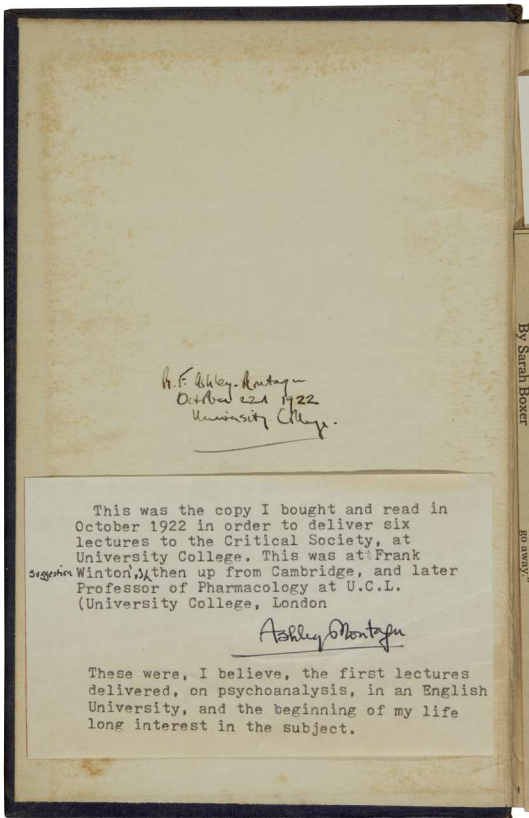 M. F. Ashley-Montagu
October 22d 1922
University College.
This was the copy I bought and read in
October 1922 in order to deliver six
lectures to the Critical Society, at
University College. This was at Frank
Winton's suggestion, then up from Cambridge, and later
Professor of Pharmacology at U.C.L.
(University College, London
Ashley Montagu
These were, I believe, the first lectures
delivered, on psychoanalysis, in an English
University, and the beginning of my life
long interest in the subject.
By Sarah Boxer
go away."